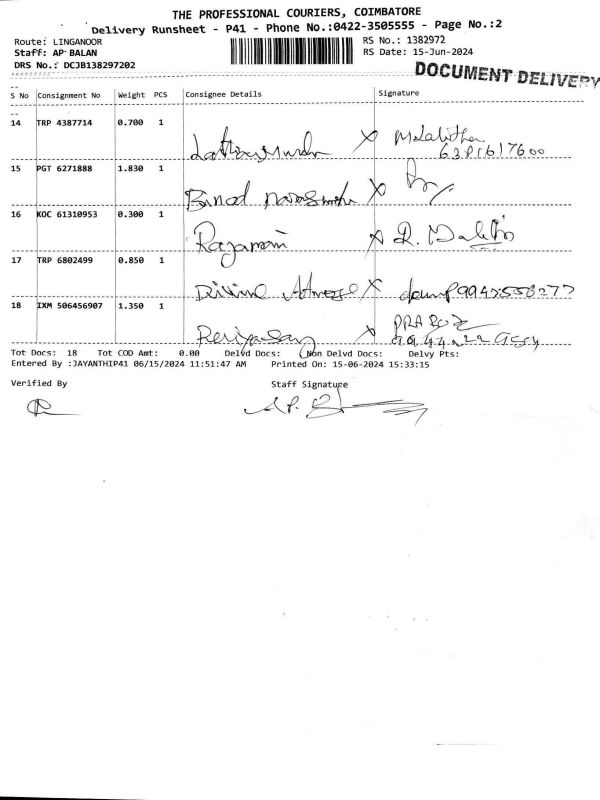 THE PROFESSIONAL COURIERS, COIMBATORE
Delivery Runsheet - P41 - Phone No.:0422-3505555 - Page No.:2
Route: LINGANOOR
RS No.: 1382972
Staff: AP BALAN
RS Date: 15-Jun-2024
DRS No.: DCJB138297202
DOCUMENT DELIVERY
S No Consignment No Weight PCS Consignee Details Signature
14 TRP 4387714 0.700 1
15 PGT 6271888 1.830 1
Binod
16 KOC 61310953 0.300 1
Rajamani
17 TRP 6802499 0.850 1
Divine
18 IXM 506456907 1.350 1
Periyasamy
Tot Docs: 18 Tot COD Amt: 0.00 Delvd Docs: Non Delvd Docs: Delvy Pts:
Entered By :JAYANTHIP41 06/15/2024 11:51:47 AM Printed On: 15-06-2024 15:33:15
Verified By Staff Signature